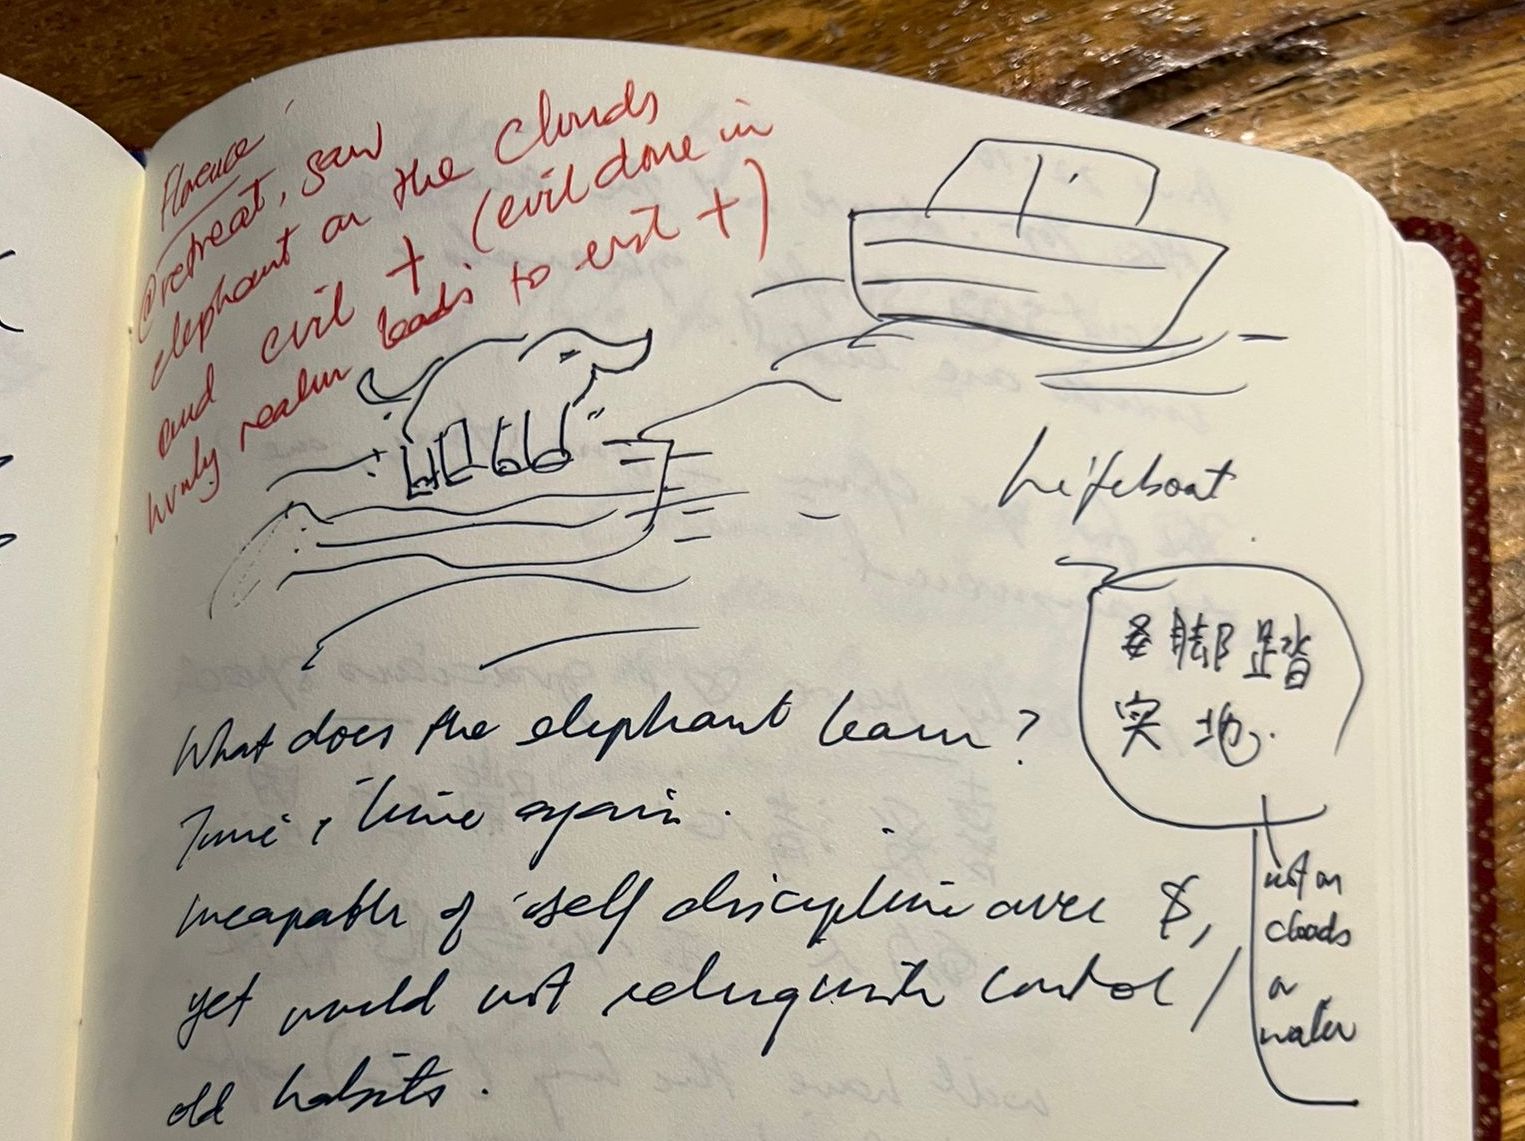 Florence
@retreat, saw
elephant on the clouds
and evil + (evil done in
realm leads to exit +)
Lifeboat
脚踏
实地.
not on
clouds
or
water
What does the elephant learn?
Time & time again.
Incapable of self discipline over $,
yet would not relinquish control /
old habits.